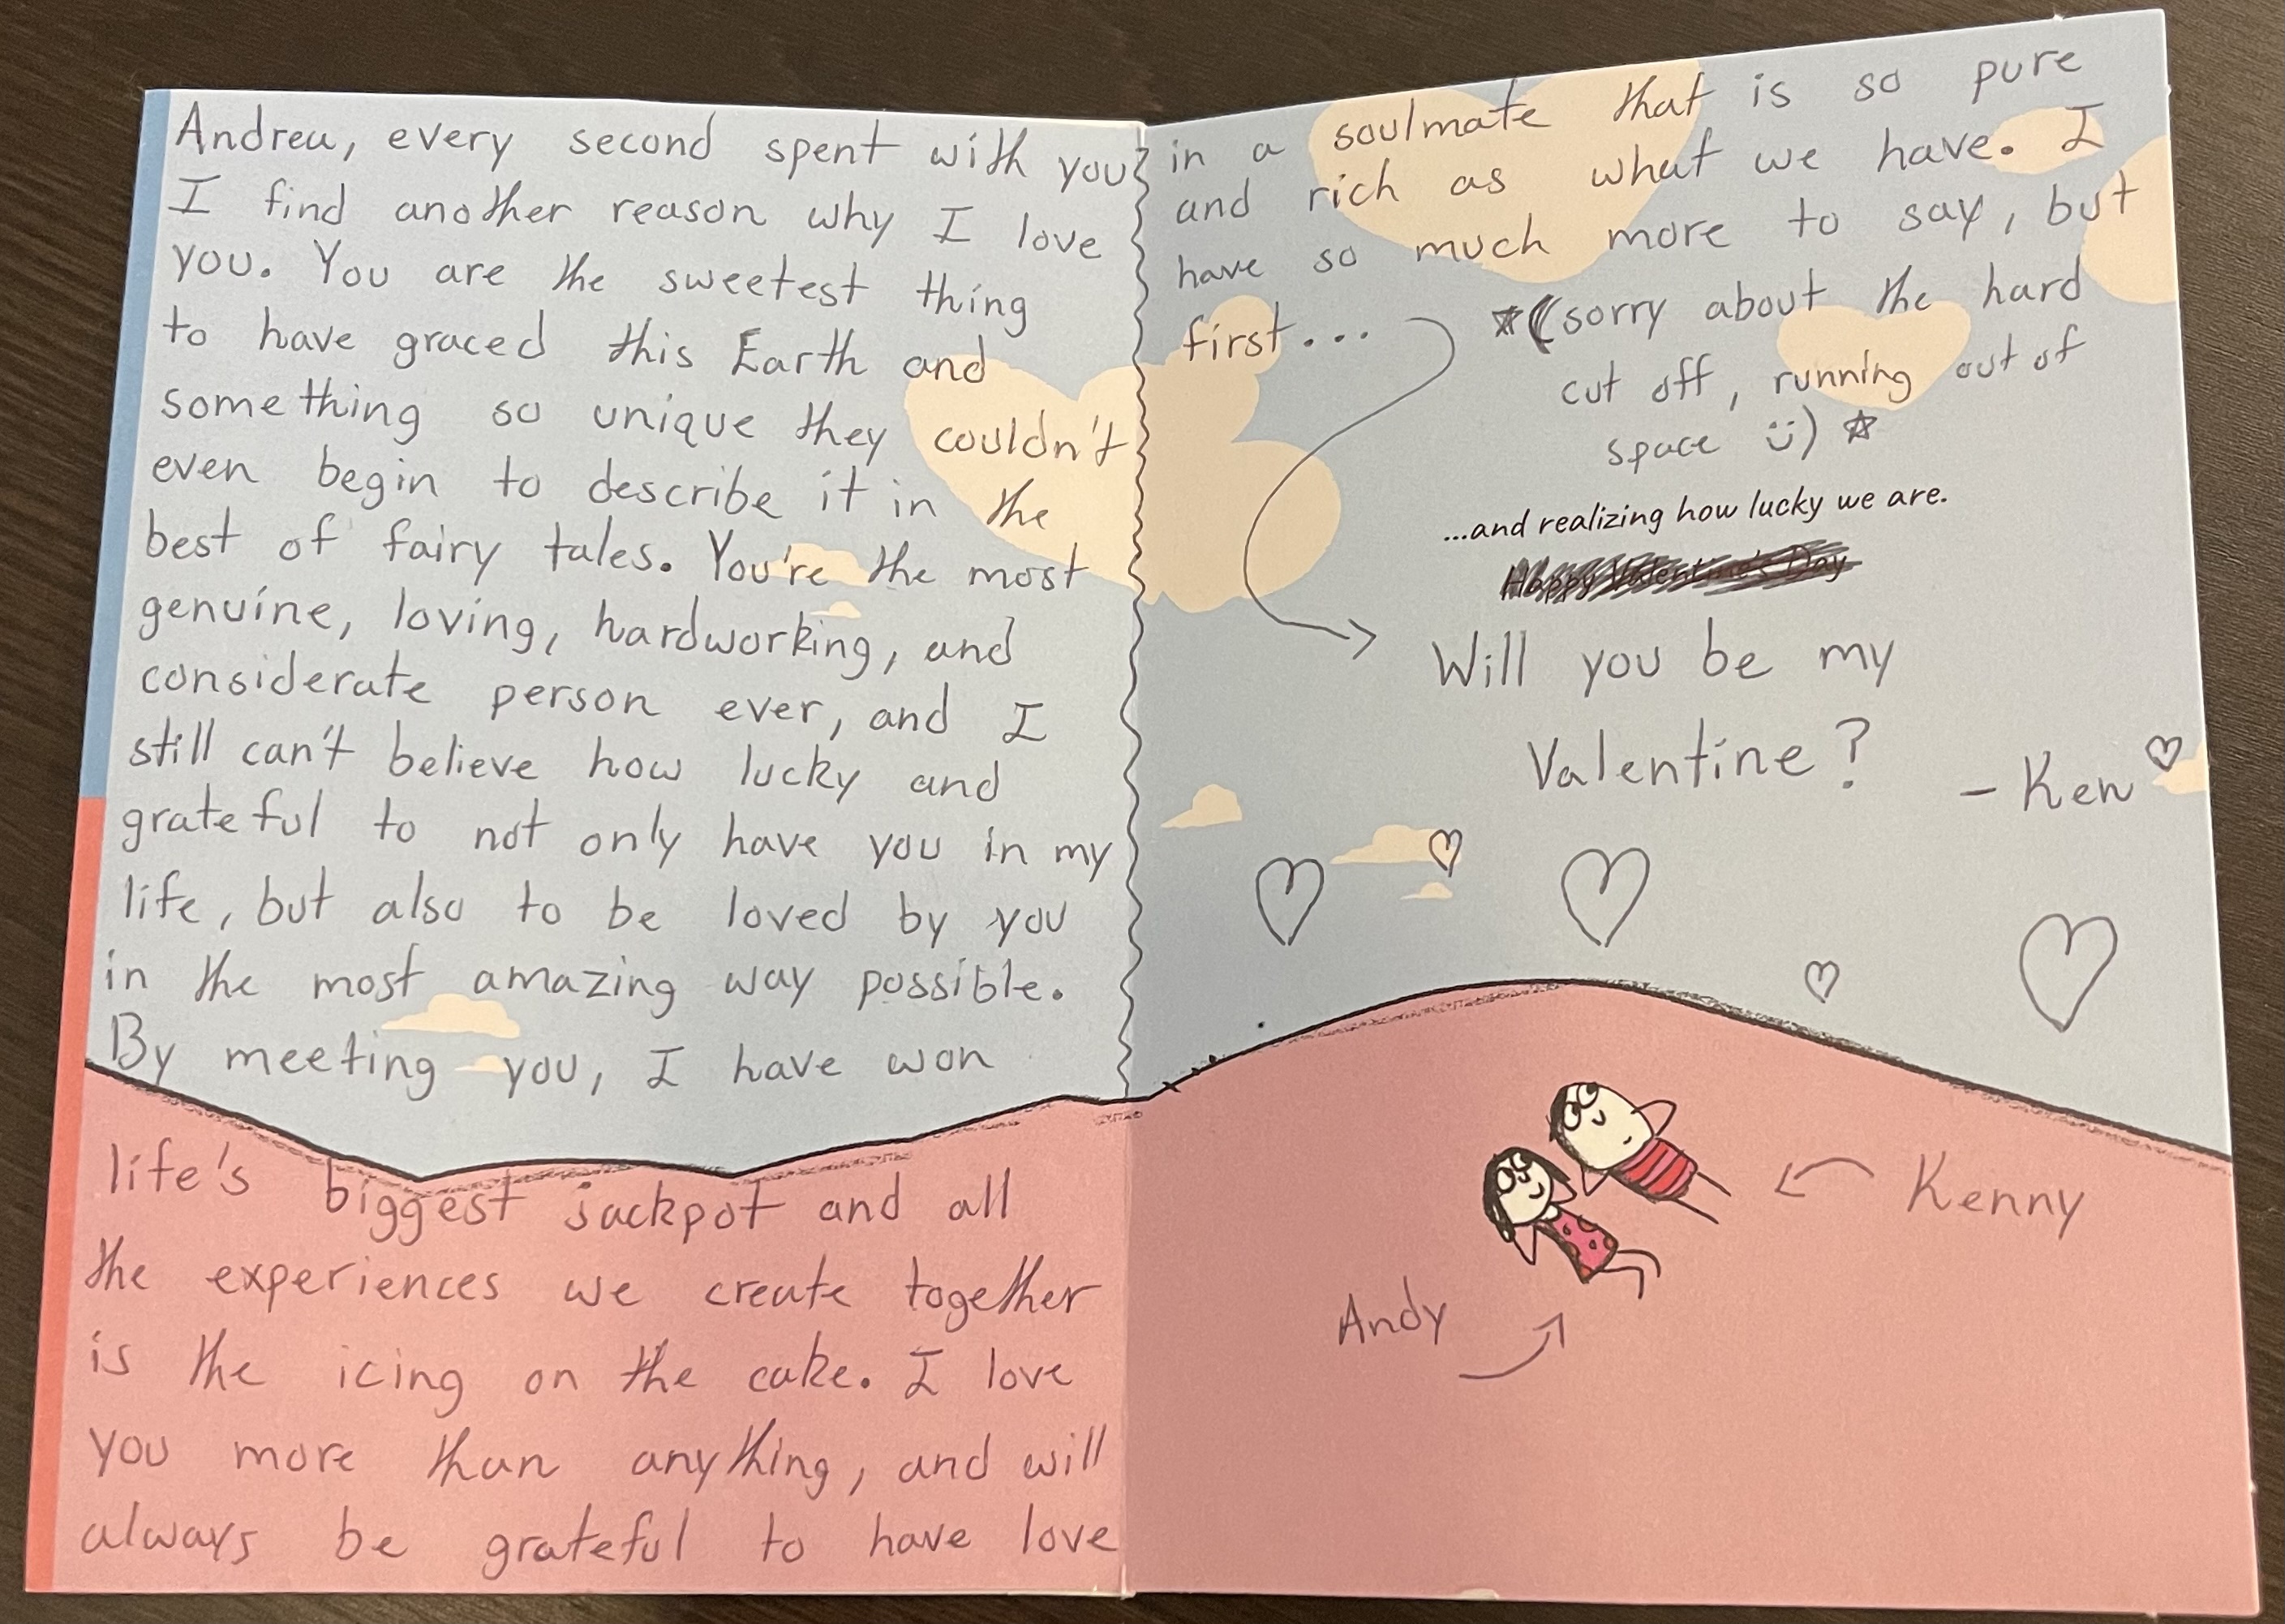 Andrea, every second spent with you
I find another reason why I love
you. You are the sweetest thing
to have graced this Earth and
something so unique they couldn't
even begin to describe it in the
best of fairy tales. You're the most
genuine, loving, hardworking, and
considerate person ever, and I
still can't believe how lucky and
grateful to not only have you in my
life, but also to be loved by you
in the most amazing way possible.
By meeting you, I have won
life's biggest jackpot and all
the experiences we create together
is the icing on the cake. I love
you more than anything, and will
always be grateful to have love
in a soulmate that is so pure
and rich as what we have. I
have so much more to say, but
first...
(sorry about the hard
cut off, running out of
space :))
...and realizing how lucky we are.
Happy Valentine's Day
Will you be my
Valentine?
- Ken
Kenny
Andy